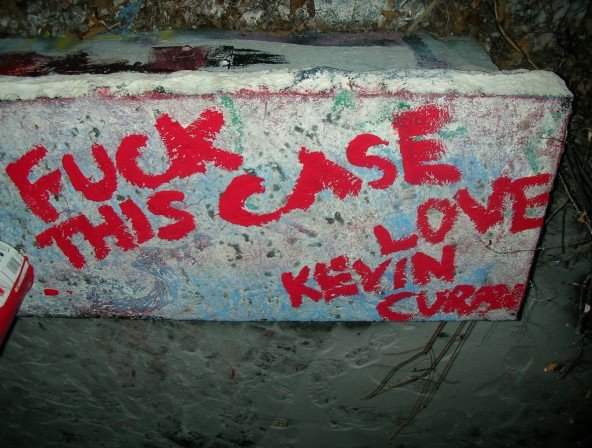 FUCK
THIS CASE
LOVE
KEVIN
CURAN